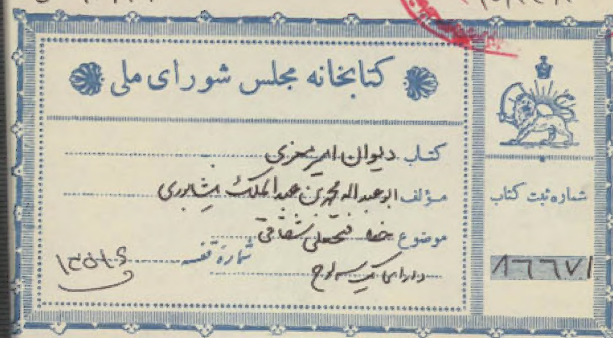 کتابخانه مجلس شورای ملی
کتاب دیوان امیر معزی
مؤلف ابوعبداله محمد بن عبدالملک نیشابوری
موضوع خط فتحعلی شقاقی
شمارهٔ قفسه ۱۳۵۸۶
دارای یک سرلوح
شماره ثبت کتاب
۸۶۶۷۱